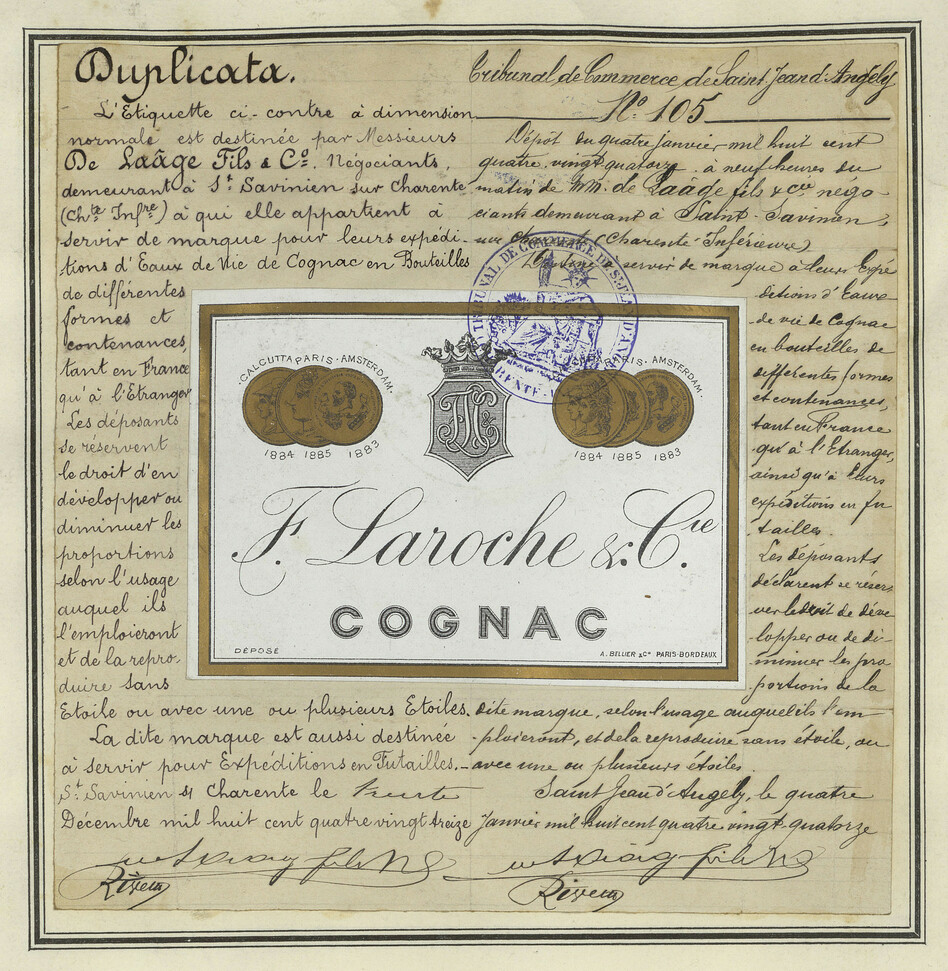 Duplicata.
L'Etiquette ci-contre à dimension
normale est destinée par Messieurs
De Laâge Fils & Cº. Négociants,
demeurant à St Savinien sur Charente
(Chte Infre) à qui elle appartient à
servir de marque pour leurs expédi-
tions d'Eaux de Vie de Cognac en Bouteilles
de différentes
formes et
contenances,
tant en France
qu'à l'Etranger
Les déposants
se réservent
le droit d'en
développer ou
diminuer les
proportions
selon l'usage
auquel ils
l'emploieront
et de la repro-
duire sans
Etoile ou avec une ou plusieurs Etoiles.
La dite marque est aussi destinée
à servir pour Expéditions en Futailles.
St Savinien s/ Charente le Trente
Décembre mil huit cent quatre vingt treize
Tribunal de Commerce de Saint Jean d'Angely
Nº 105
Dépôt du quatre janvier mil huit cent
quatre vingt quatorze, à neuf heures du
matin de MM. de Laâge fils & cie négo-
ciants demeurant à Saint-Savinien,
sur Charente (Charente-Inférieure)
servir de marque à leurs Expé
ditions d'Eaux
de vie de Cognac
en bouteilles de
différentes formes
et contenances,
tant en France
qu'à l'Etranger,
ainsi qu'à leurs
expéditions en fu
tailles.
Les déposants
déclarent se réser
ver le droit de déve
lopper ou de di-
minuer les pro
portions de la
dite marque, selon l'usage auquel ils l'em
-ploieront, et de la reproduire sans étoile, ou
avec une ou plusieurs étoiles.
Saint Jean d'Angely, le quatre
Janvier mil huit cent quatre vingt quatorze
TRIBUNAL DE COMMERCE DE ST JEAN D'A
CALCUTTA PARIS - AMSTERDAM.
1884 1885 1883
PARIS - AMSTERDAM.
1884 1885 1883
F. Laroche & Cie.
COGNAC
DÉPOSÉ
A. BELLIER & Cº PARIS-BORDEAUX